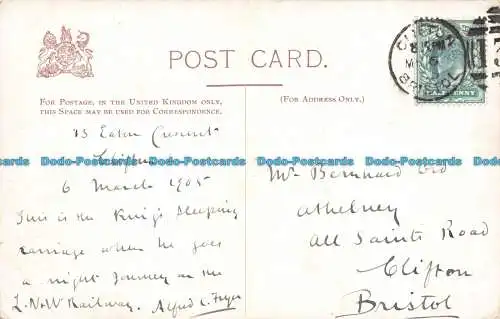 POST CARD.
FOR POSTAGE, IN THE UNITED KINGDOM ONLY,
THIS SPACE MAY BE USED FOR CORRESPONDENCE.
(FOR ADDRESS ONLY.)
CLIFTON
BRISTOL
15 Eaton Crescent
Clifton
6 March 1905
This is the King's sleeping
carriage when he goes
a night journey on the
L. & N W Railway. Alfred C. Fryer
Mr Bernhard
Athelney
All Saints Road
Clifton
Bristol
Dodo-Postcards Dodo-Postcards Dodo-Postcards Dodo-Postcards